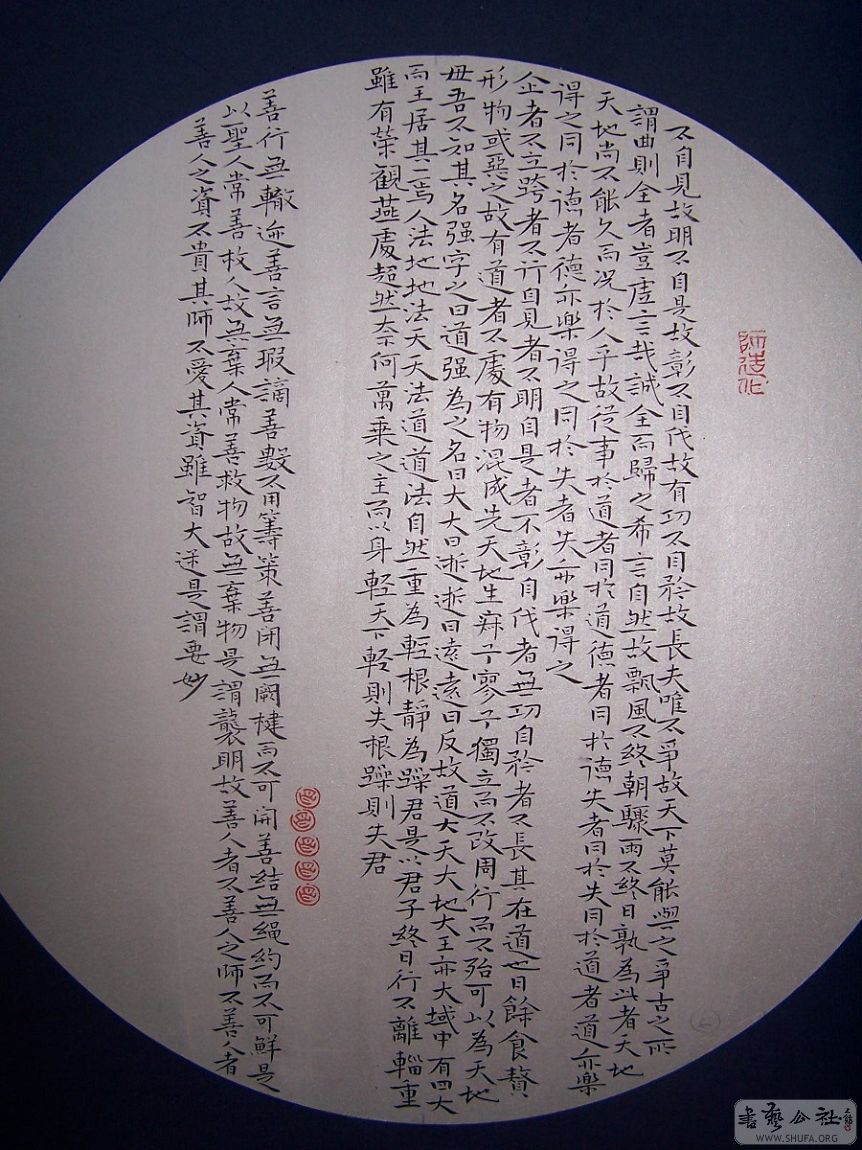 師造化
不自見故明不自是故彰不自伐故有功不自矜故長夫唯不爭故天下莫能與之爭古之所
謂曲則全者豈虛言哉誠全而歸之希言自然故飄風不終朝驟雨不終日孰為此者天地
天地尚不能久而況於人乎故從事於道者同於道德者同於德失者同於失同於道者道亦樂
得之同於德者德亦樂得之同於失者失亦樂得之
企者不立跨者不行自見者不明自是者不彰自伐者無功自矜者不長其在道也曰餘食贅
形物或惡之故有道者不處有物混成先天地生寂兮寥兮獨立而不改周行而不殆可以為天地
毋吾不知其名强字之曰道强為之名曰大大曰逝逝曰遠遠曰反故道大天大地大王亦大域中有四大
而王居其一焉人法地地法天天法道道法自然重為輕根靜為躁君是以君子終日行不離輜重
雖有榮觀燕處超然奈何萬乘之主而以身輕天下輕則失根躁則失君
善行無轍迹善言無瑕謫善數不用籌策善閉無關楗而不可開善結無繩約而不可鮮是
以聖人常善救人故無棄人常善救物故無棄物是謂襲明故善人者不善人之師不善人者
善人之資不貴其師不愛其資雖智大迷是謂要妙
書藝公社
WWW.SHUFA.ORG